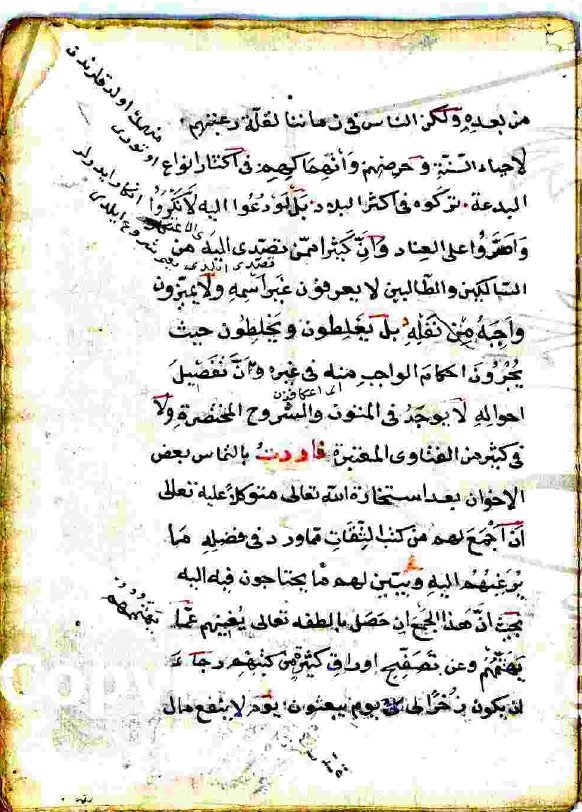 من بعده ولكن الناس فى زماننا لقلة رغبتهم
لاحياء السنة وحرصهم وانهماكهم فى اكثار انواع
البدعة تركوه فى اكثر البلاد بل لو دعوا اليه لانكروا
واصروا على العناد وان كثيرا ممن تصدى اليه من
السالكين والطالبين لا يعرفون غير اسمه ولا يميزون
واجبه من نفله بل يغلطون ويخلطون حيث
يجرون احكام الواجب منه فى غيره وان تفصيل
احواله لا يوجد فى المتون والشروح المختصرة ولا
فى كثير من الفتاوى المعتبرة فاردت بالتماس بعض
الاخوان بعد استخارة الله تعالى متوكلا عليه تعالى
ان اجمع لهم من كتب الثقات مما ورد فى فضله ما
يرغبهم اليه ويبين لهم ما يحتاجون فيه اليه
بحيث ان هذا الجمع ان حصل بالطفه تعالى يغنيهم عما
يهتمهم وعن تصفيح اوراق كثيرة من كتبهم رجاء
ان يكون ذخرا لى يوم يبعثون يوم لا ينفع مال
منهمك اولدقلرندن
اى الاعتكاف
تصدى
اى اعتكافك
Copy